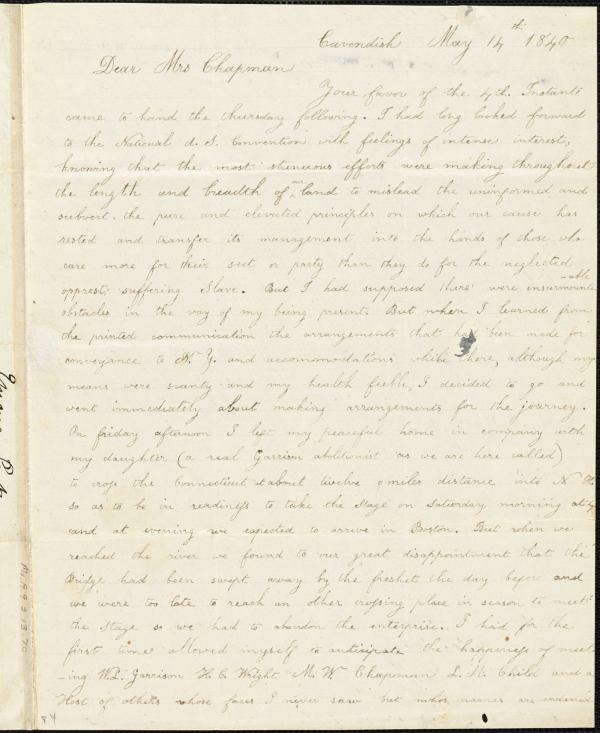 Cavendish May 14th 1840
Dear Mrs Chapman
Your favor of the 4th. Instant
came to hand the thursday following. I had long looked forward
to the National A. S. Convention with feelings of intense interest,
knowing that the most strenuous efforts were making throughout
the length and breadth of our land to mislead the uninformed and
subvert the pure and elevated principles on which our cause has
rested and transfer its management into the hands of those who
care more for their sect or party than they do for the neglected
opprest, suffering Slave. But I had supposed there were insurmountable
obstacles in the way of my being present. But when I learned from
the printed communication the arrangements that had been made for
conveyance to N. Y. and accommodations while there, although my
means were scanty and my health feeble, I decided to go and
went immediately about making arrangements for the journey.
On friday afternoon I left my peaceful home in company with
my daughter (a real Garrison abolitionist as we are here called)
to cross the Connecticut at about twelve miles distance into N H
so as to be in readiness to take the Stage on Saturday morning at 4
and at evening we expected to arrive in Boston. But when we
reached the river we found to our great disappointment that the
Bridge had been swept away by the freshet the day before and
we were too late to reach an other crossing place in season to meet
the Stage so we had to abandon the enterprise. I had for the
first time allowed myself to anticipate the happiness of meet
-ing W.L. Garrison H. C. Wright M. W. Chapman L. M. Child and a
Host of others whose faces I never saw but whos names are endeared
84